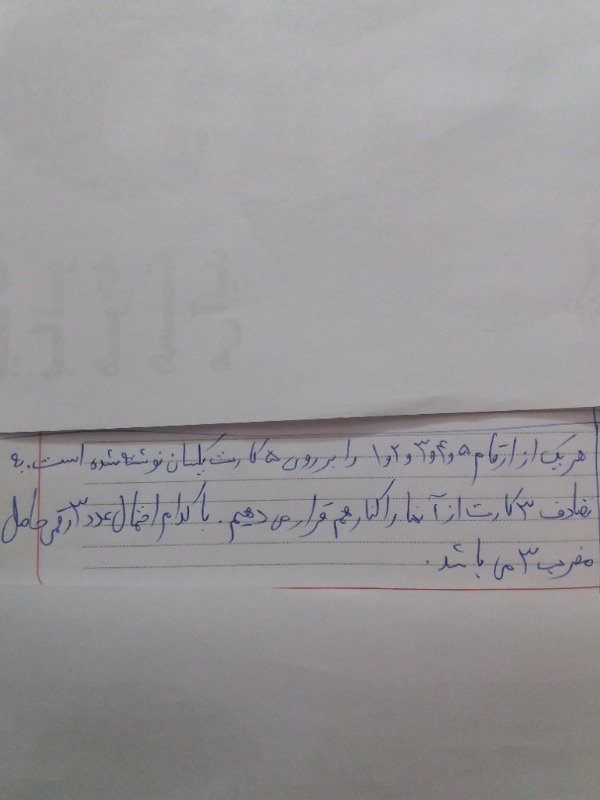 هر یک از ارقام ۵ و ۴ و ۳ و ۲ و ۱ را بر روی ۵ کارت یکسان نوشته شده است. به
تصادف ۳ کارت از آنها را کنار هم قرار می دهیم. با کدام احتمال عدد ۳ رقمی حاصل
مضرب ۳ می باشد.